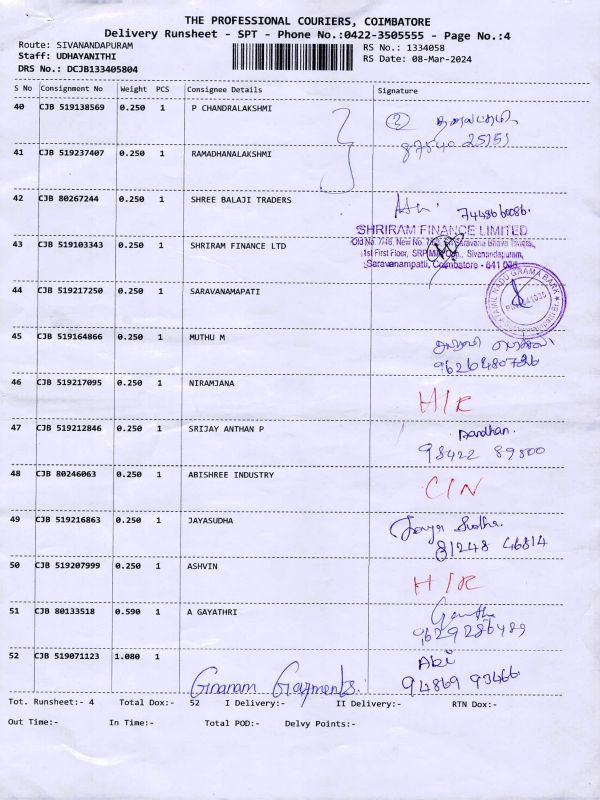 THE PROFESSIONAL COURIERS, COIMBATORE
Delivery Runsheet - SPT - Phone No.:0422-3505555 - Page No.:4
Route: SIVANANDAPURAM RS No.: 1334058
Staff: UDHAYANITHI RS Date: 08-Mar-2024
DRS No.: DCJB133405804
S No Consignment No Weight PCS Consignee Details Signature
40 CJB 519138569 0.250 1 P CHANDRALAKSHMI
2
87540 25151
41 CJB 519237407 0.250 1 RAMADHANALAKSHMI
42 CJB 80267244 0.250 1 SHREE BALAJI TRADERS
7448660086
SHRIRAM FINANCE LIMITED
43 CJB 519103343 0.250 1 SHRIRAM FINANCE LTD
1st First Floor, Sivanandapuram,
Saravanampatti, Coimbatore - 641 035
44 CJB 519217250 0.250 1 SARAVANAMAPATI
TAMIL NADU GRAMA BANK
45 CJB 519164866 0.250 1 MUTHU M
46 CJB 519217095 0.250 1 NIRAMJANA
H/R
47 CJB 519212846 0.250 1 SRIJAY ANTHAN P
98422 89800
48 CJB 80246063 0.250 1 ABISHREE INDUSTRY
C/N
49 CJB 519216863 0.250 1 JAYASUDHA
Jaya Sudha.
81248 46814
50 CJB 519207999 0.250 1 ASHVIN
H/R
51 CJB 80133518 0.590 1 A GAYATHRI
9629286489
52 CJB 519071123 1.080 1
Abi
Garments. 94869 93466
Tot. Runsheet:- 4 Total Dox:- 52 I Delivery:- II Delivery:- RTN Dox:-
Out Time:- In Time:- Total POD:- Delvy Points:-